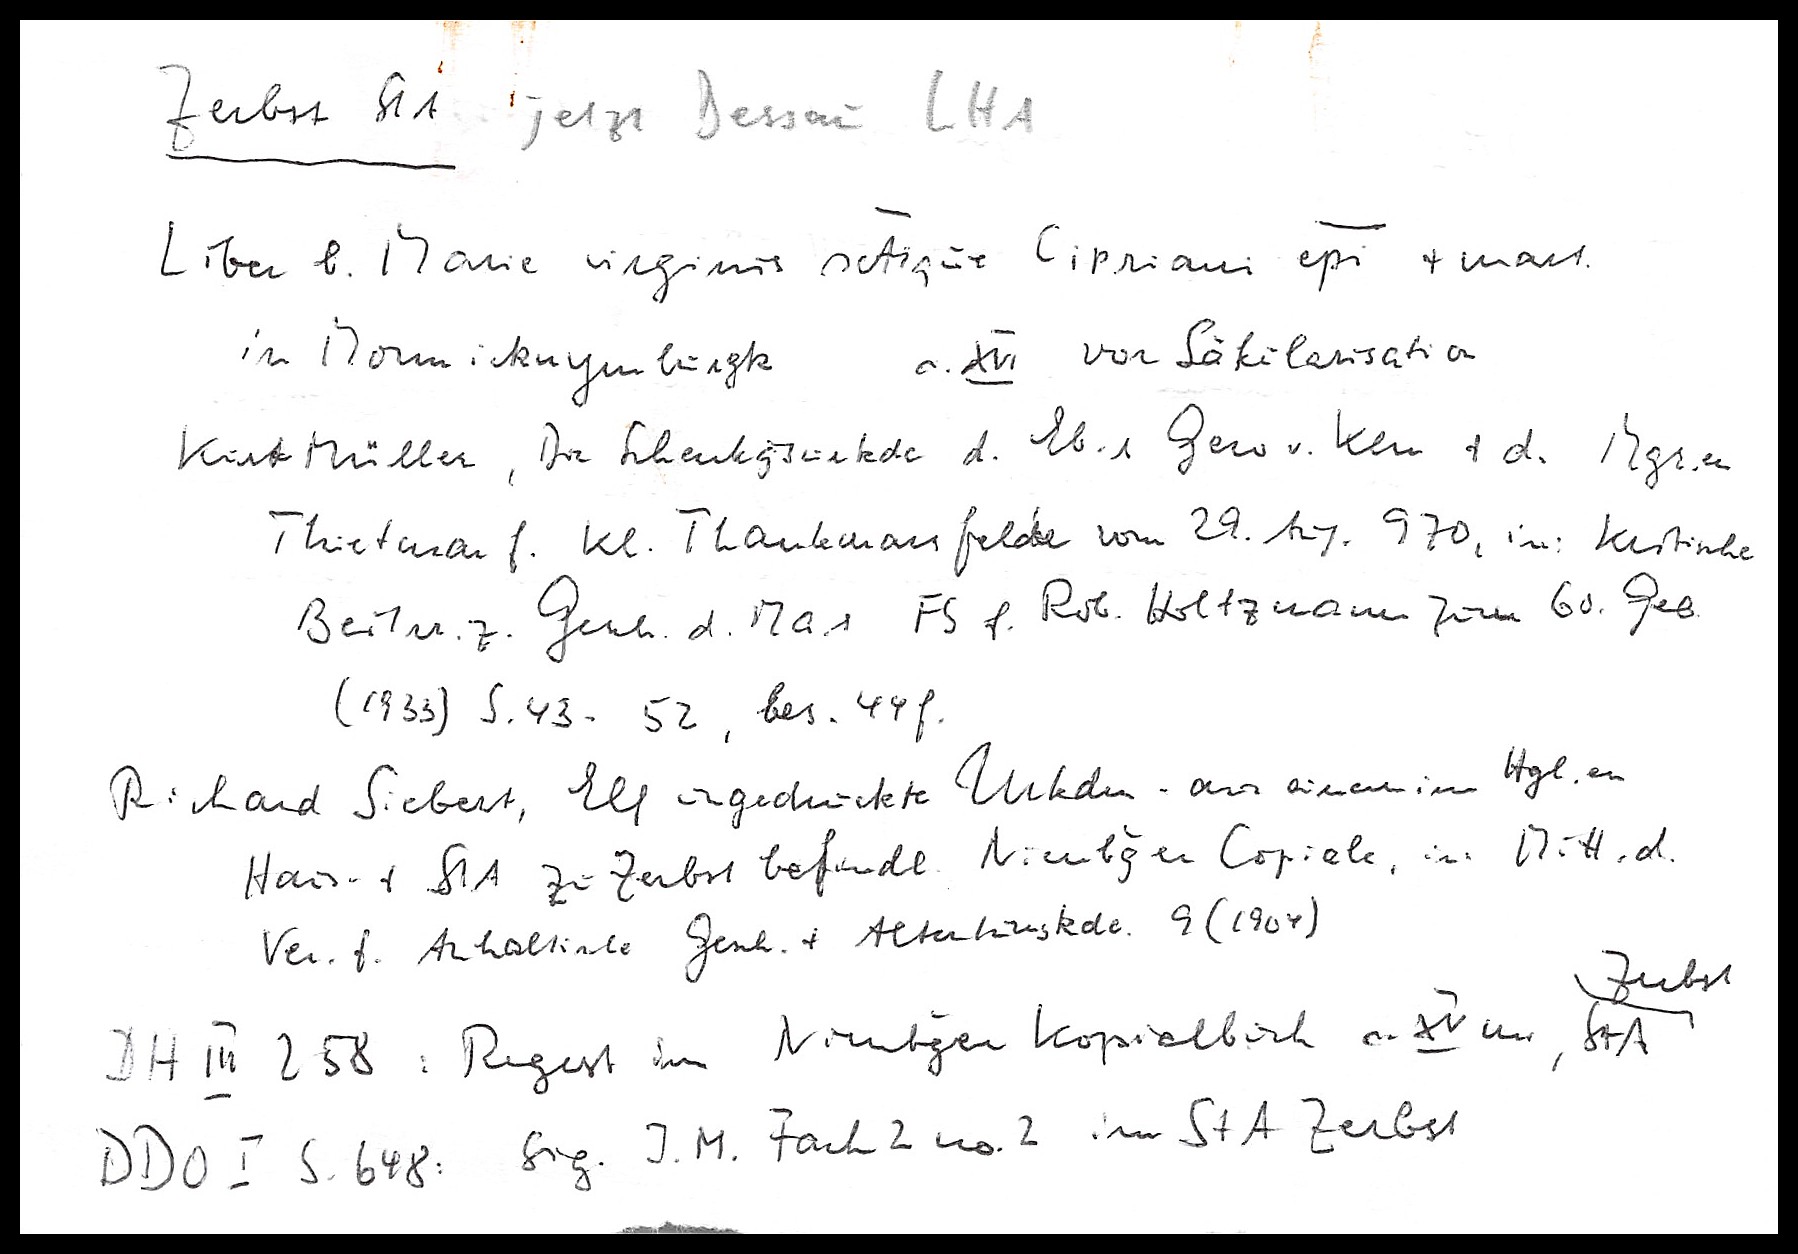 Zerbst StA jetzt Dessau LHA
Liber b. Marie virginis sctique Cipriani epi + mart.
in Monnicknyenburgk a. XVI vor Säkularisation
Kurt Müller, Die Schenkgsurkde d. Eb.s Gero v. Kln + d. Mgr.en
Thietmar f. Kl. Thankmarsfelde vom 29. Aug. 970, in: Kritische
Beitrr. z. Gesch. d. MAs FS f. Rob. Holtzmann zum 60. Geb.
(1933) S. 43-52, bes. 44f.
Richard Siebert, Elf ungedruckte Urkdn. aus einem im Hgl.en
Haus- + StA zu Zerbst befindl. Nienbger Copiale, in: Mitt. d.
Ver. f. Anhaltische Gesch. + Altertumskde. 9 (1904)
DH III 258: Regest im Nienbger Kopialbuch a. XV, Zerbst StA
DDO I S. 648: Sig. J. M. Fach 2 no. 2 im StA Zerbst